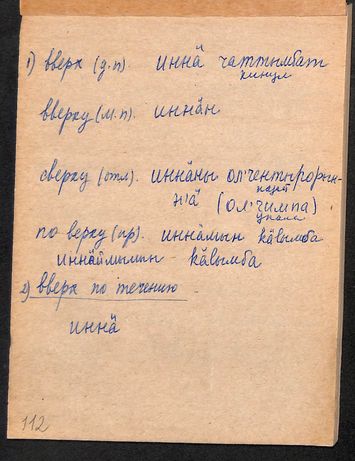 1) вверх (д.п). иннӓ чаттымбат
кинул
вверху (м.п) иннӓн
сверху (отл). иннӓны ол'чентыроӷын-
н'ӓ (ол'чимпа)
упала
по верху (пр). иннӓмын кӓвымба
иннӓймымын кӓвымба
2) вверх по течению
иннӓ
112